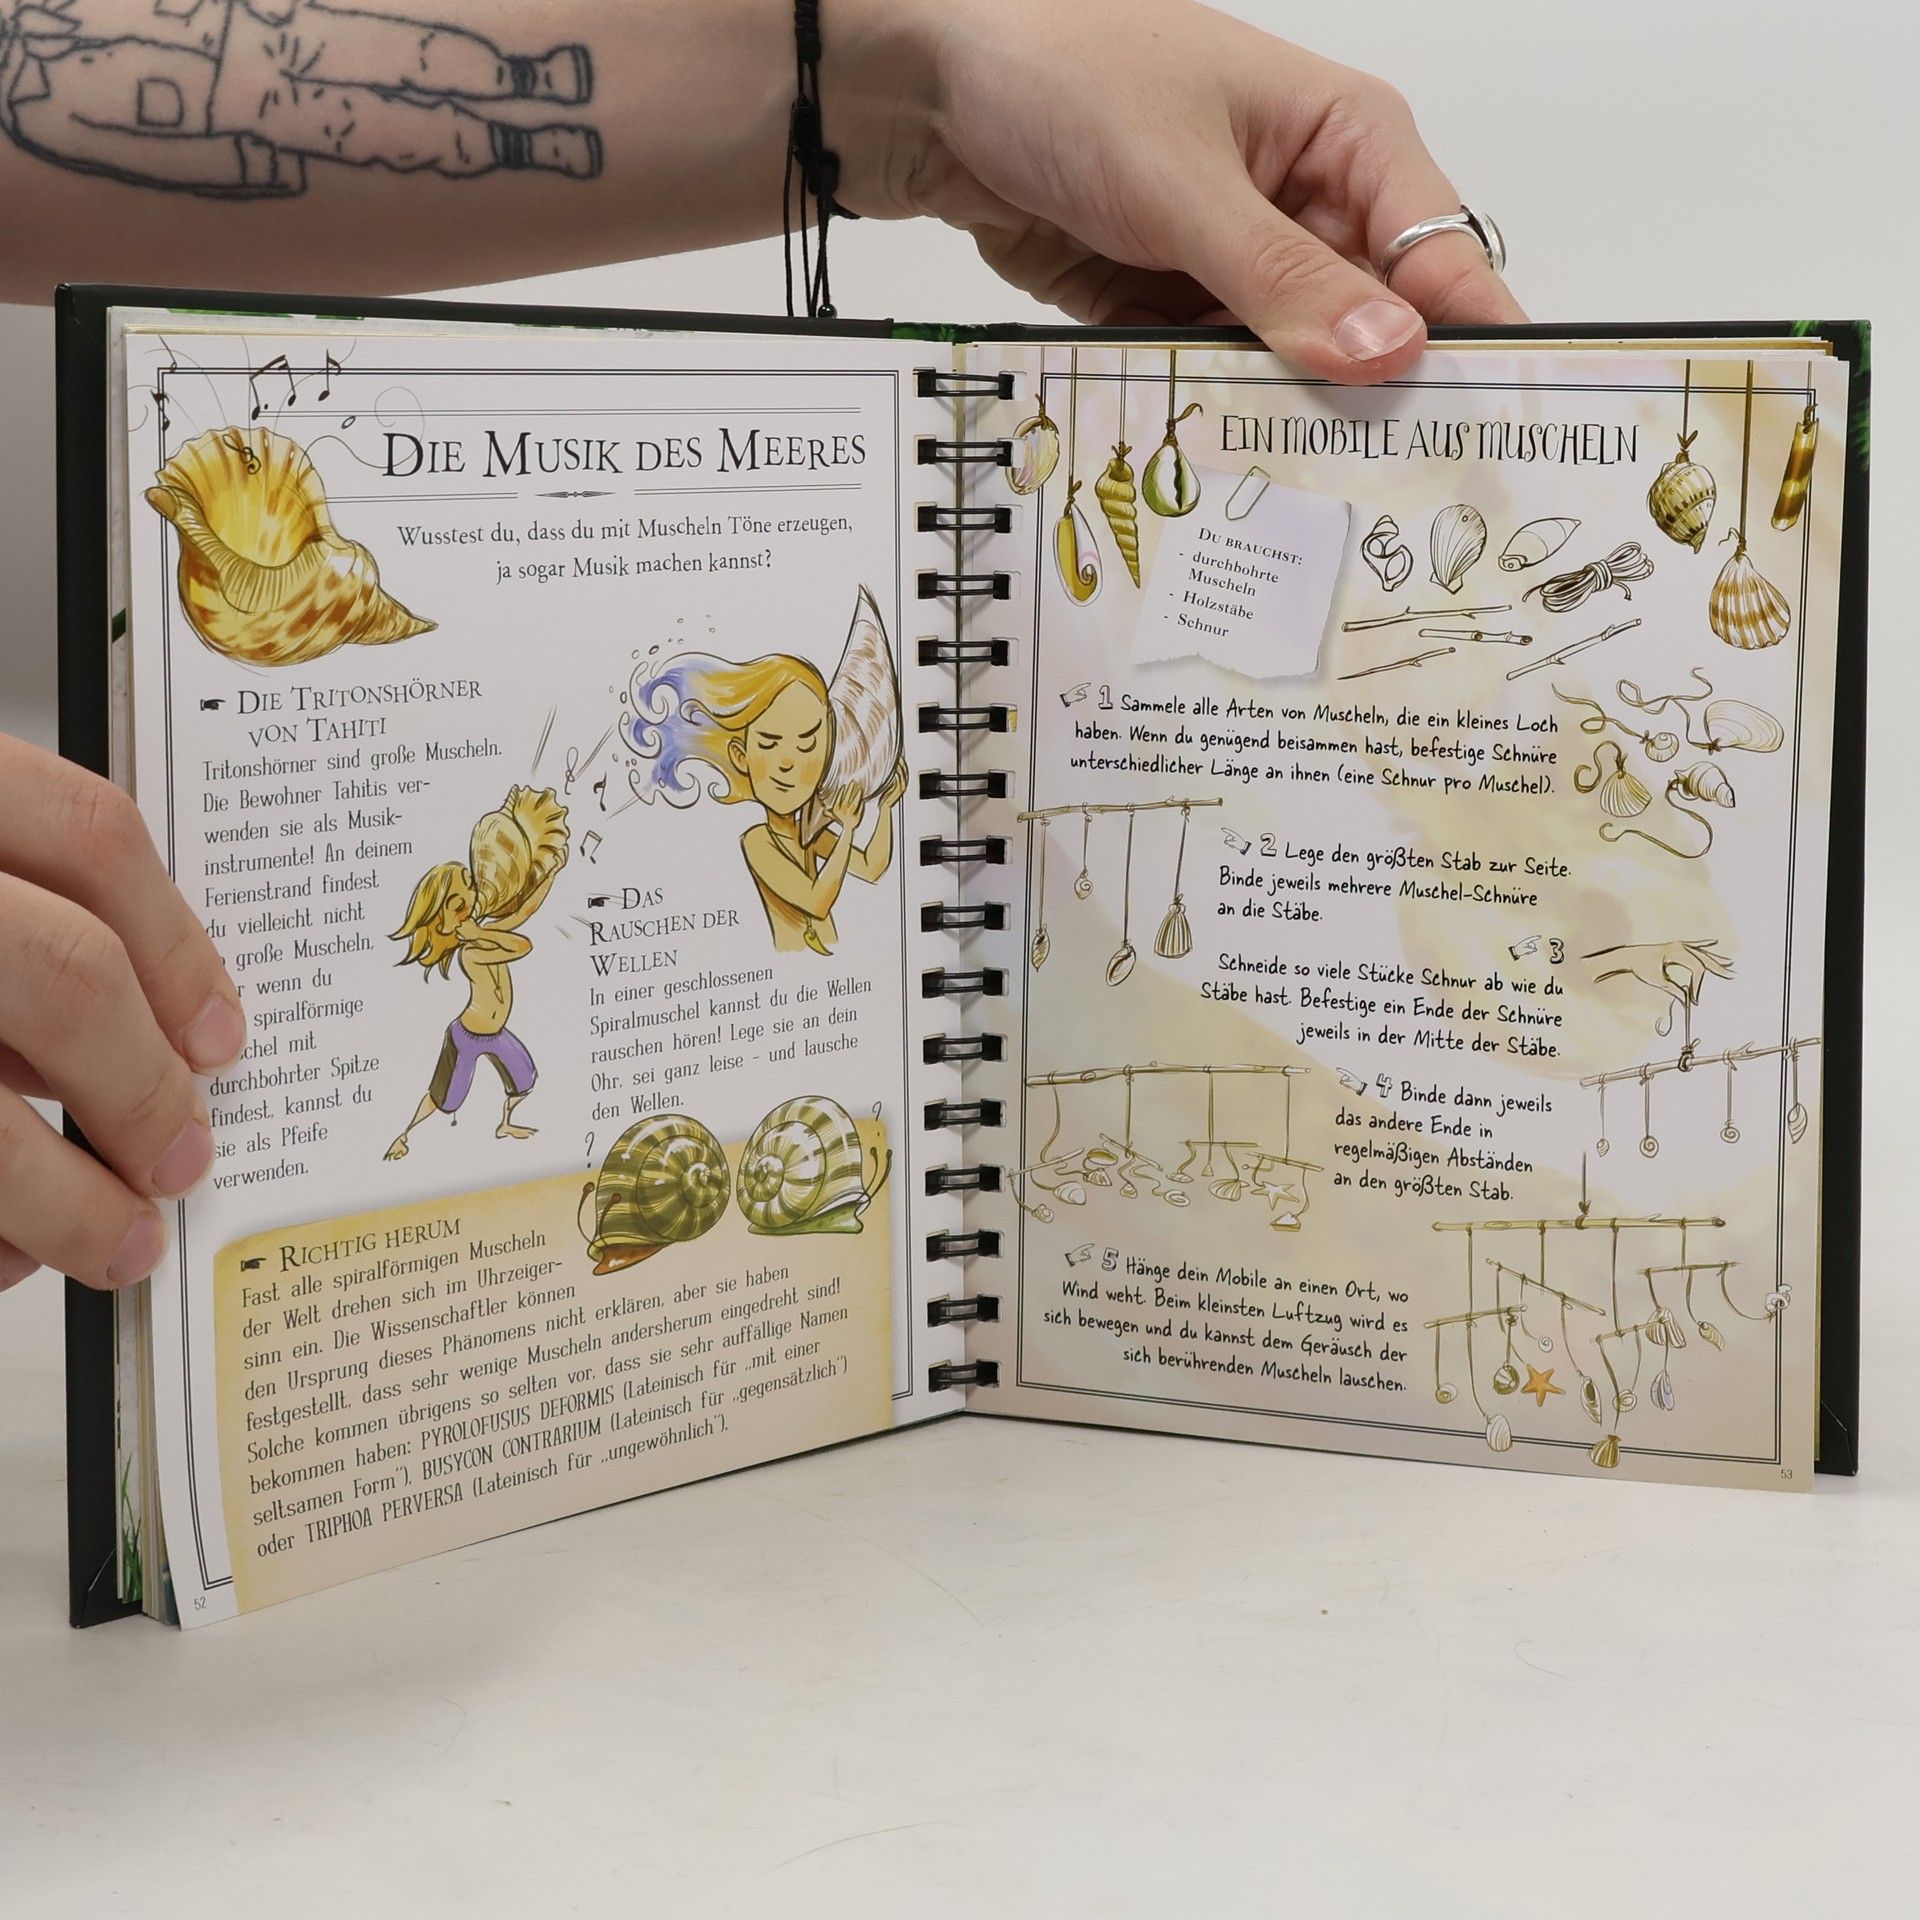 DIE MUSIK DES MEERES
Wusstest du, dass du mit Muscheln Töne erzeugen,
ja sogar Musik machen kannst?
DIE TRITONSHÖRNER
VON TAHITI
Tritonshörner sind große Muscheln.
Die Bewohner Tahitis ver-
wenden sie als Musik-
instrumente! An deinem
Ferienstrand findest
du vielleicht nicht
große Muscheln,
wenn du
spiralförmige
mit
durchbohrter Spitze
findest, kannst du
sie als Pfeife
verwenden.
DAS
RAUSCHEN DER
WELLEN
In einer geschlossenen
Spiralmuschel kannst du die Wellen
rauschen hören! Lege sie an dein
Ohr, sei ganz leise – und lausche
den Wellen.
? ?
RICHTIG HERUM
Fast alle spiralförmigen Muscheln
der Welt drehen sich im Uhrzeiger-
sinn ein. Die Wissenschaftler können
den Ursprung dieses Phänomens nicht erklären, aber sie haben
festgestellt, dass sehr wenige Muscheln andersherum eingedreht sind!
Solche kommen übrigens so selten vor, dass sie sehr auffällige Namen
bekommen haben: PYROLOFUSUS DEFORMIS (Lateinisch für „mit einer
seltsamen Form“), BUSYCON CONTRARIUM (Lateinisch für „gegensätzlich“)
oder TRIPHOA PERVERSA (Lateinisch für „ungewöhnlich“).
52
EIN MOBILE AUS MUSCHELN
DU BRAUCHST:
- durchbohrte
Muscheln
- Holzstäbe
- Schnur
1 Sammele alle Arten von Muscheln, die ein kleines Loch
haben. Wenn du genügend beisammen hast, befestige Schnüre
unterschiedlicher Länge an ihnen (eine Schnur pro Muschel).
2 Lege den größten Stab zur Seite.
Binde jeweils mehrere Muschel-Schnüre
an die Stäbe.
3
Schneide so viele Stücke Schnur ab wie du
Stäbe hast. Befestige ein Ende der Schnüre
jeweils in der Mitte der Stäbe.
4 Binde dann jeweils
das andere Ende in
regelmäßigen Abständen
an den größten Stab.
5 Hänge dein Mobile an einen Ort, wo
Wind weht. Beim kleinsten Luftzug wird es
sich bewegen und du kannst dem Geräusch der
sich berührenden Muscheln lauschen.
53